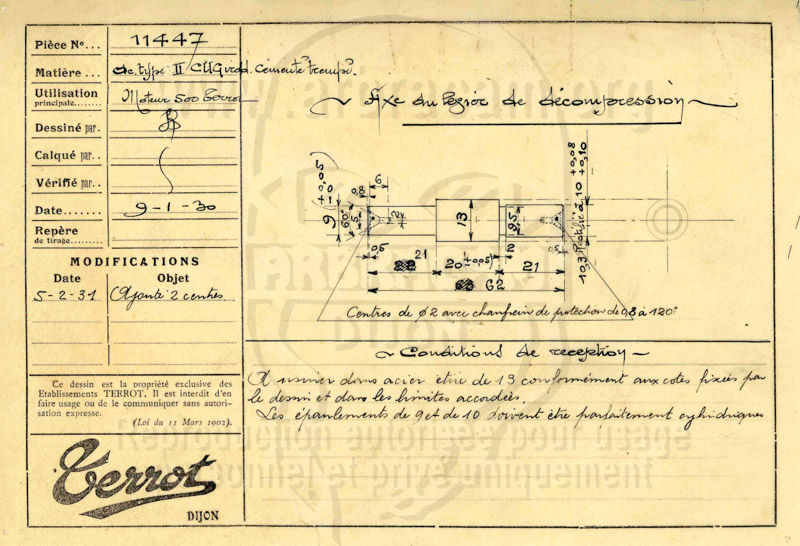 Pièce No... 11447
Matière... Ac. type II
Utilisation principale....... Moteur 500 Terrot
Dessiné par.
Calqué par..
Vérifié par..
Date........ 9-1-30
Repère de tirage.........
MODIFICATIONS
Date Objet
5-2-31 Ajouté 2 centres
Ce dessin est la propriété exclusive des
Etablissements TERROT. Il est interdit d'en
faire usage ou de le communiquer sans autori-
sation expresse.
(Loi du 11 Mars 1902).
Terrot
DIJON
Axe du levier de décompression
6
0,8
9
60°
5
2
13
9,5
10,3 Rectifié à 10 +0,08 +0,10
0,5
21
20 (±0,05)
2
21
0,5
62
Centres de ø 2 avec chanfrein de protection de 0,8 à 120°
Conditions de reception
A usiner dans acier étiré de 13 conformément aux cotes fixées par
le dessin et dans les limites accordées.
Les épaulements de 9 et de 10 doivent être parfaitement cylindriques
Reproduction autorisée pour usage
personnel et privé uniquement